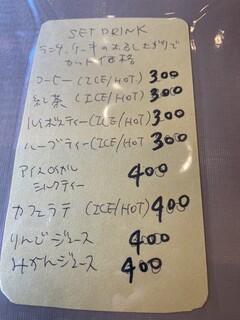 SET DRINK
ランチ、ケーキの
セット価格
コーヒー (ICE/HOT) 300
紅茶 (ICE/HOT) 300
ルイボスティー (ICE/HOT) 300
ハーブティー (ICE/HOT) 300
アイスロイヤル
ミルクティー 400
カフェラテ (ICE/HOT) 400
りんごジュース 400
みかんジュース 400